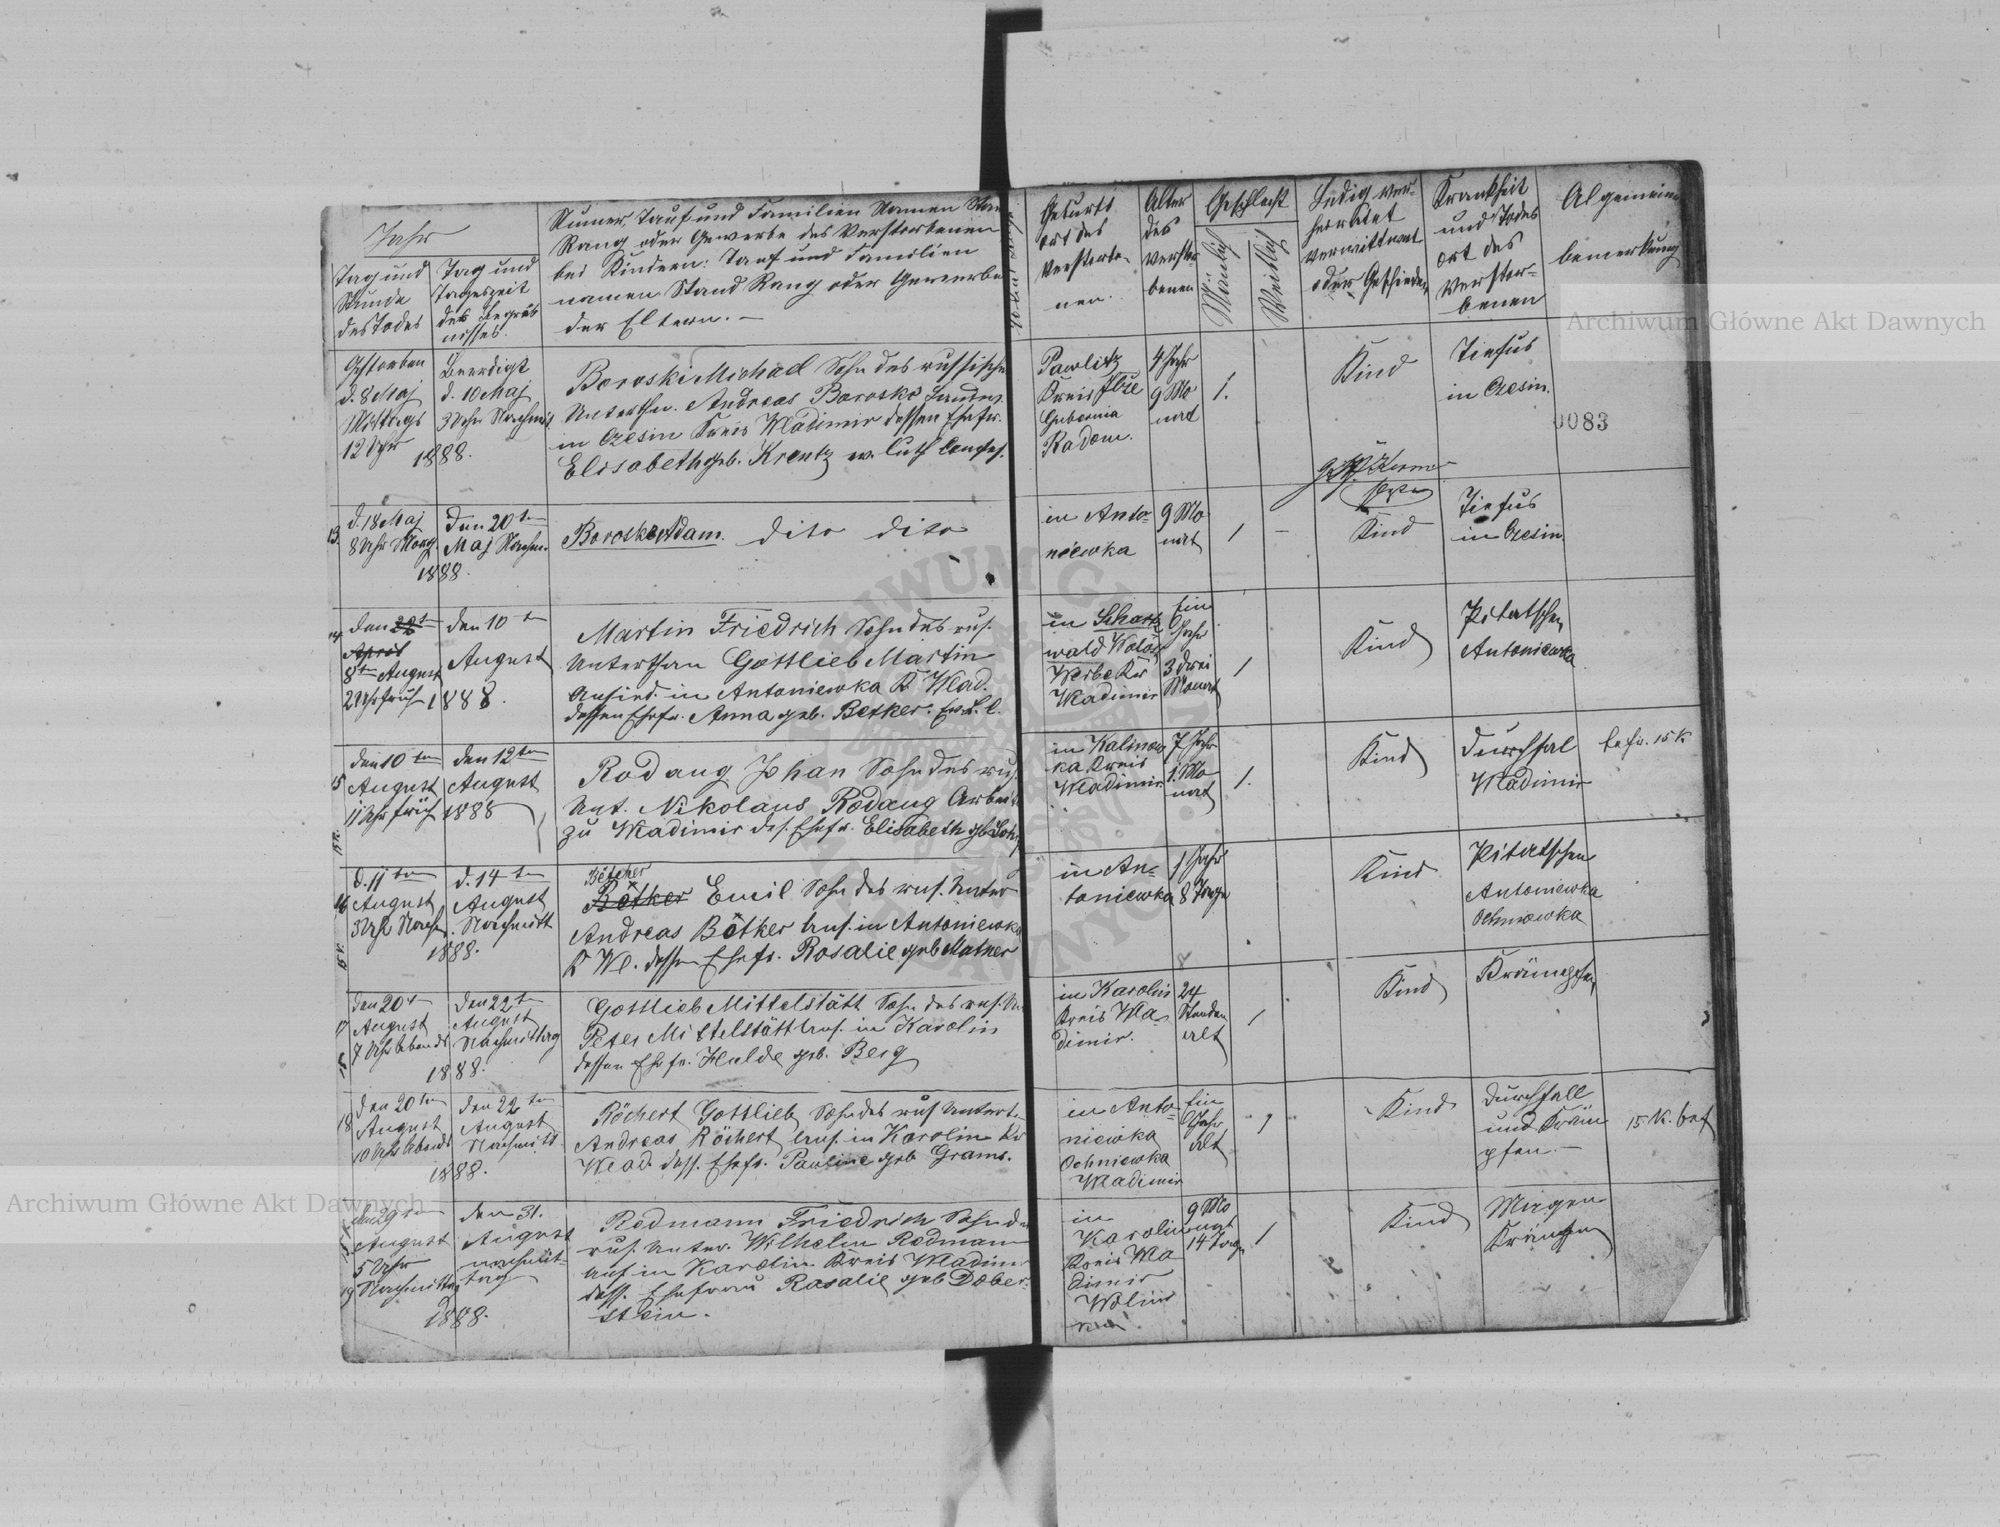 Jahr
Tag und
Stunde
des Todes
Tag und
Tageszeit
des Begräb
nisses.
Numer, Tauf und Familien Namen
Rang oder Gewerbe des Verstorbenen
bei Kindern: Tauf und Familien
namen Stand Rang oder Gewerbe
der Eltern. –
Geburts
ort des
Verstorbe-
nen.
Alter
des
Verstor
benen
Geschlecht
Mänlich
Weiblich
Ledig ver-
heirathet
verwittwet
oder Geschieden
Krankheit
und Todes
ort des
Verstor-
benen
Algemeine
bemerkung
Gestorben
d. 8 Maj
Mittags
12 Uhr
Beerdigt
d. 10 Maj
3 Uhr Nachmit
1888.
Boroski Michael Sohn des russischen
Unterthn. Andreas Boroski
in Czesin Kreis Wladimir dessen Ehefr.
Elisabeth geb. Krentz ev. luth Confes.
Pawlitz
Kreis
Gubernia
Radom.
4 Jahr
9 Mo
nat
1.
Kind
Tiefus
in Czesin.
0083
13
d. 18 Maj
8 Uhr Morg.
Den 20t
Maj Nachm.
1888.
Boroski Adam. dito dito
in Anto-
niewka
9 Mo
nat
1
–
Kind
Tiefus
in Czesin.
14
den
April
8t August
2 Uhr früh
den 10t
August
1888.
Martin Friedrich Sohn des rus.
Unterthan Gottlieb Martin
Ansied. in Antoniewka K. Wlad.
dessen Ehefr. Anna geb. Betker. Ev. L. C.
in Schartz
wald Wolost
Werbe Kr
Wladimir
Ein
Jahr
3 drei
Monat
1
Kind
Pitatschen
Antoniewka
15
den 10ten
August
11 Uhr früh
den 12ten
August
1888
Rodaug Johan Sohn des rus.
Unt. Nikolaus Rodaug Arbei
zu Wladimir des. Ehefr. Elisabeth geb
in Kalinow
ka Kreis
Wladimir
7 Jahr
1. Mo
nat
1.
Kind
Durchfal
Wladimir
15 K
16
d. 11ten
August
3 Uhr Nachm
d. 14ten
August
Nachmitt
1888.
Bötcher
Bötker Emil Sohn des rus. Unter
Andreas Bötker Ans. in Antoniewka
K Wl. dessen Ehefr. Rosalie geb Matner
in An-
toniewka
1 Jahr
8 Tage
Kind
Pitatschen
Antoniewka
Ochniewka
17
den 20t
August
7 Uhr Abends
den 22t
August
Nachmittag
1888.
Gottlieb Mittelstätt Sohn des rus. Un
Peter Mittelstätt Ans. in Karolin
dessen Ehefr. Hulde geb. Berg
in Karolin
Kreis Wla-
dimir.
24
Stunden
alt
1
Kind
Krämpfen
18
den 20ten
August
10 Uhr Abends
den 22ten
August
Nachmitt.
1888.
Röchert Gottlieb Sohn des rus Untert.
Andreas Röchert Ans. in Karolin Kr
Wlad. dess. Ehefr. Pauline geb Grams.
in Anto-
niewka
Ochniewka
Wladimir
Ein
Jahr
alt
1
Kind
Durchfall
und Kräm
pfen. –
15 K.
19
den 29
August
5 Uhr
Nachmittag
den 31.
August
nachmit-
tag
1888.
Redmann Friedrich Sohn des
rus. Unter. Wilhelm Redmann
Ans in Karolin Kreis Wladimir
dess. Ehefrau Rosalie geb Dober-
stein.
in
Karolin
Kreis Wla
dimir
Wolin
9 Mo
nat
14 Tage
1
Kind
Magen
Krämpfen
Archiwum Główne Akt Dawnych
Archiwum Główne Akt Dawnych